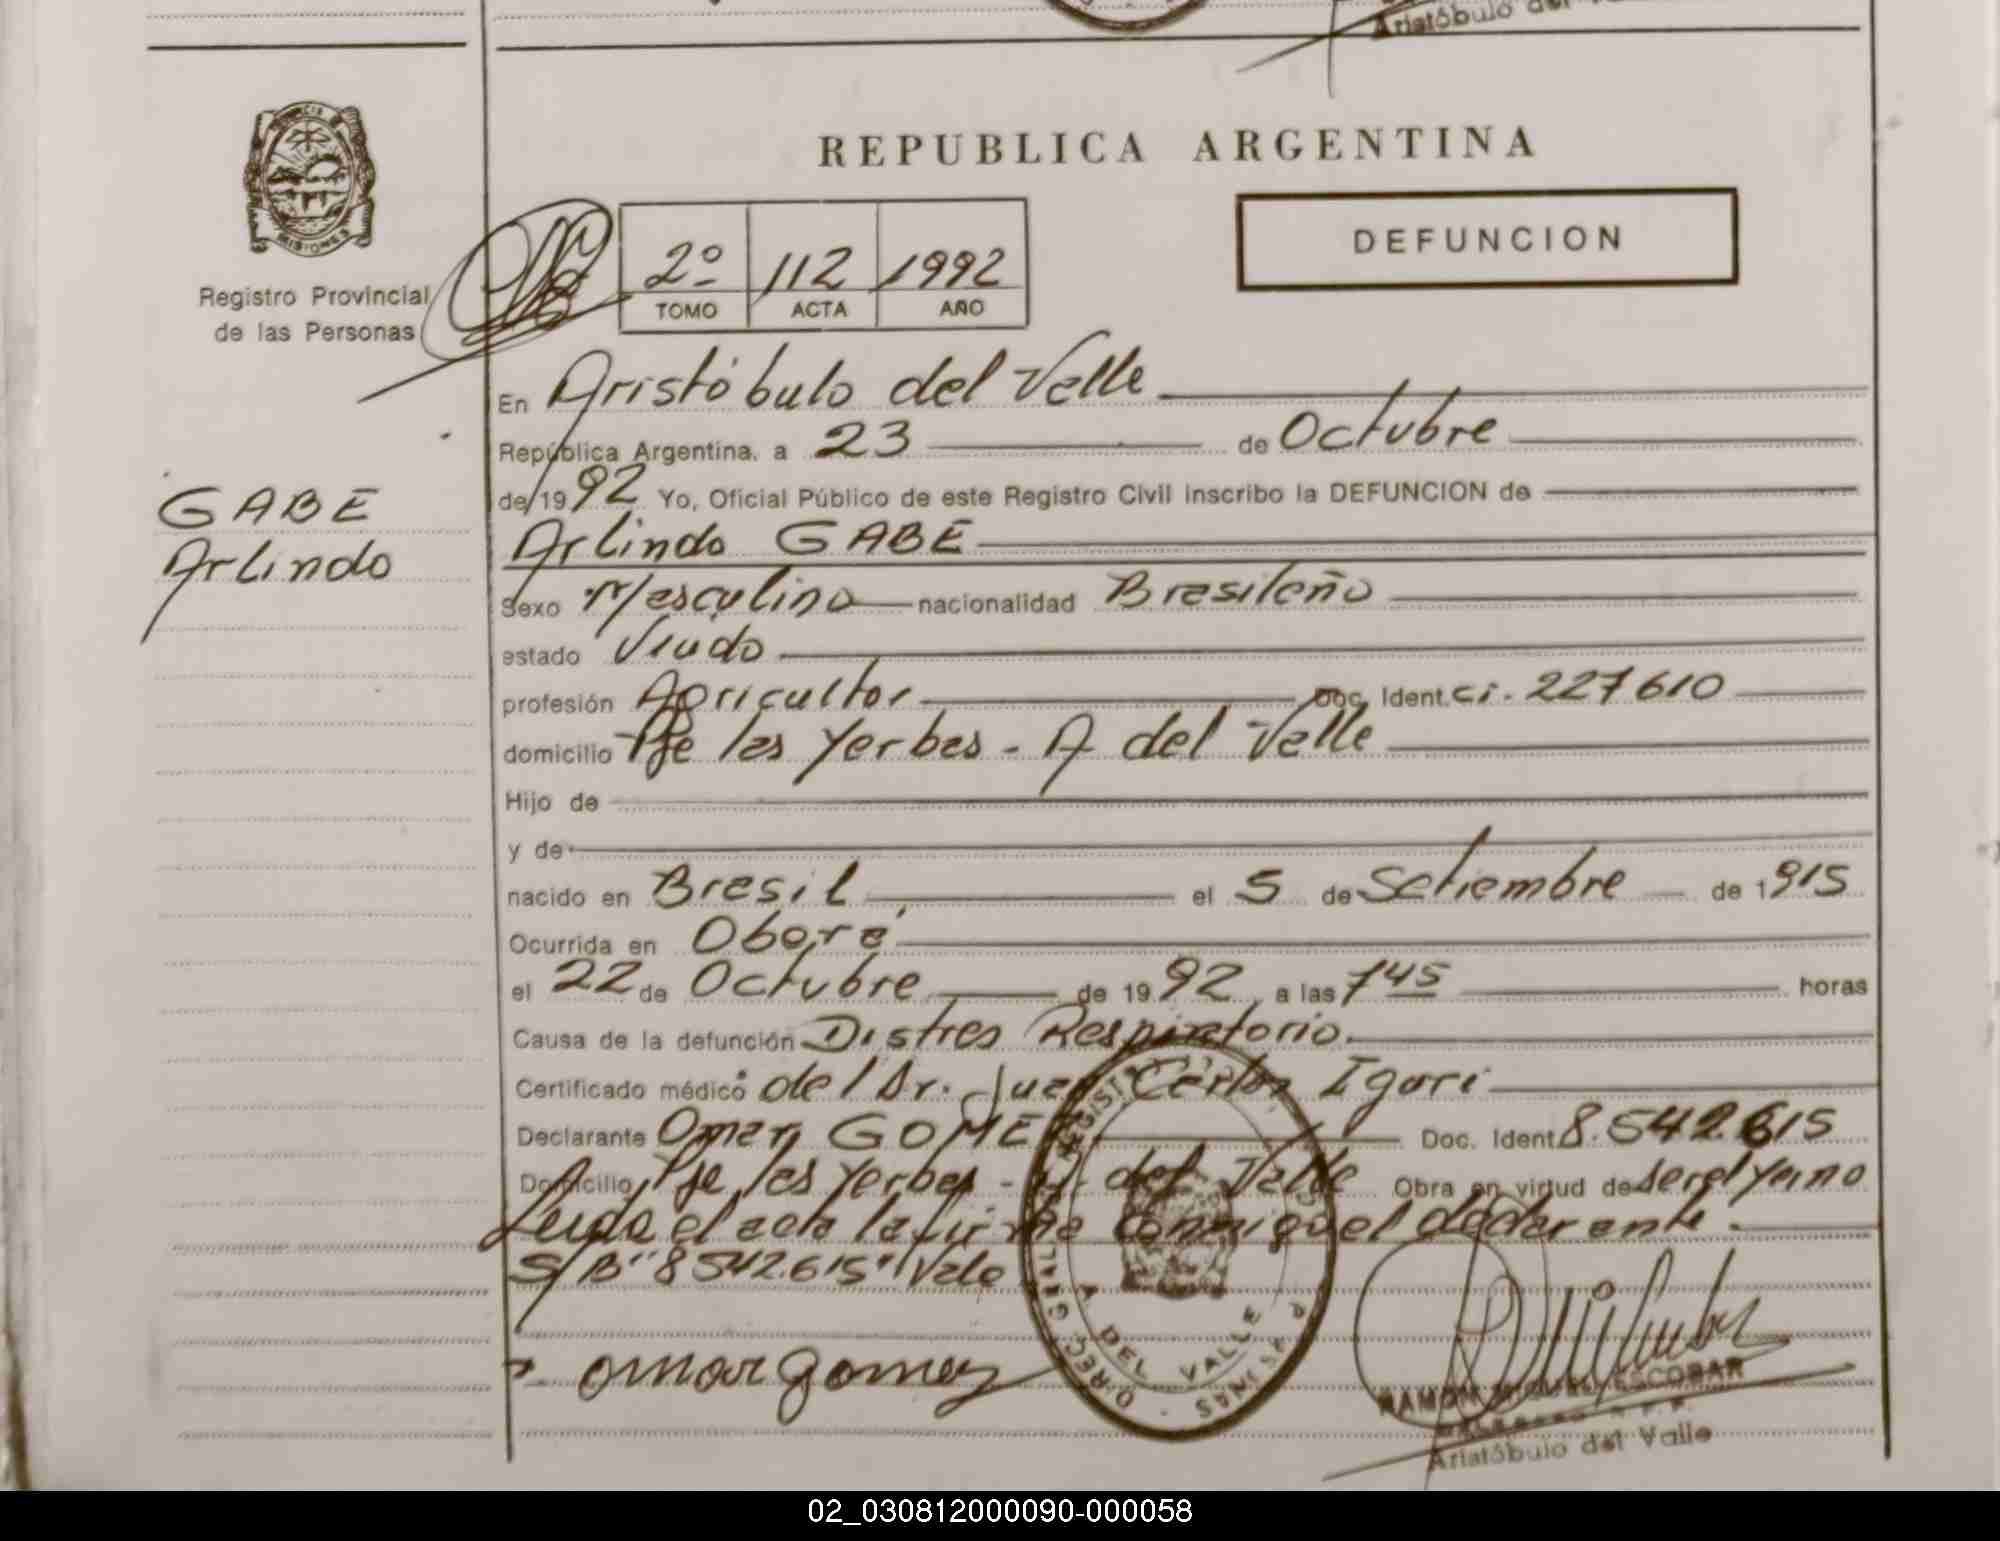 Aristóbulo del
REPUBLICA ARGENTINA
MISIONES
Registro Provincial
de las Personas
2º 112 1992
TOMO ACTA AÑO
DEFUNCION
En Aristóbulo del Valle
República Argentina, a 23 de Octubre
de 1992 Yo, Oficial Público de este Registro Civil inscribo la DEFUNCION de
GABE
Arlindo
Arlindo GABE
Sexo Masculino nacionalidad Brasileño
estado Viudo
profesión Agricultor Doc. Ident. Ci. 227610
domicilio Pje las Yerbas - A del Valle
Hijo de
y de
nacido en Brasil el 5 de Setiembre de 1915
Ocurrida en Oberá
el 22 de Octubre de 1992 a las 7 45 horas
Causa de la defunción Distres Respiratorio.
Certificado médico del Dr. Juan Carlos Igari
Declarante Omar GOMEZ Doc. Ident 8.542.615
Domicilio Pje las Yerbas - A. del Valle Obra en virtud de ser el Yerno
Leida el acta la firma conmigo el declarante.
S/B "8542.615" Vale
omar gomez
A. DEL VALLE
MISIONES
RAMON MIGUEL ESCOBAR
Aristóbulo del Valle
02_030812000090-000058